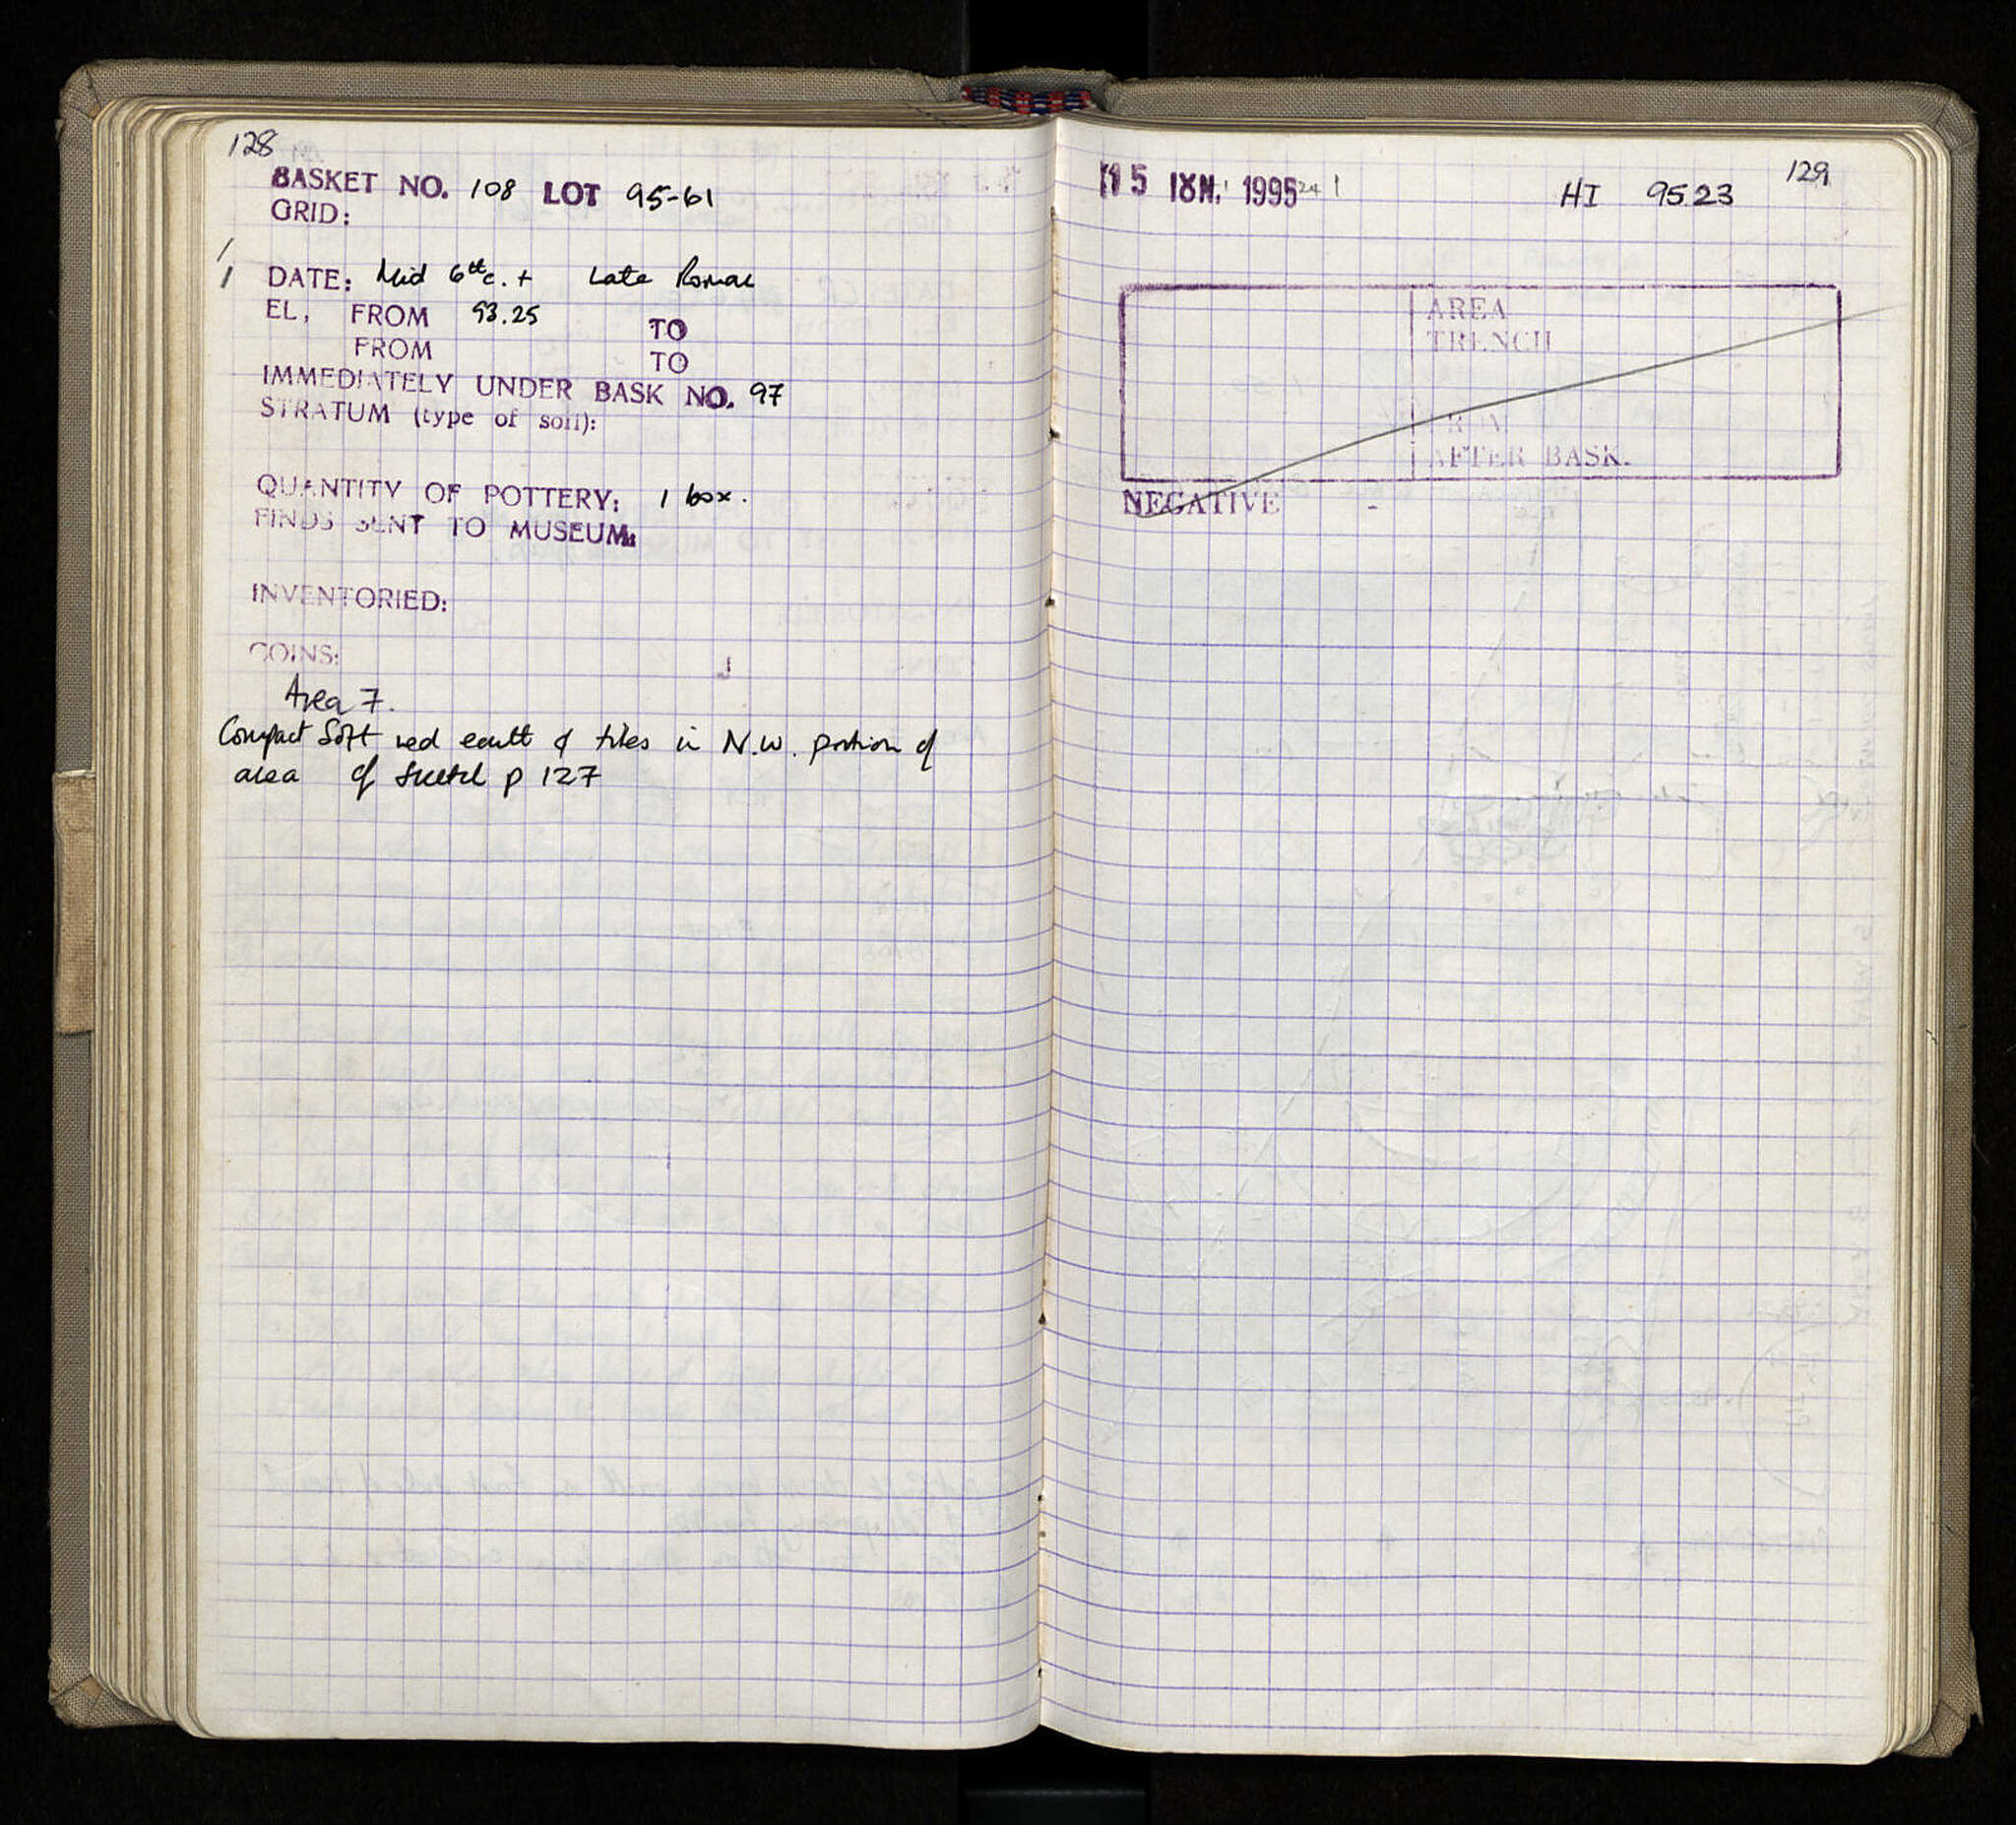 128
BASKET NO. 108 LOT 95-61
GRID:
DATE: Mid 6th c. + Late Roman
EL, FROM 93.25 TO
FROM TO
IMMEDIATELY UNDER BASK NO. 97
STRATUM (type of soil):
QUANTITY OF POTTERY: 1 box.
FINDS SENT TO MUSEUM:
INVENTORIED:
COINS:
Area 7.
Compact soft red earth & tiles in N.W. portion of
area cf sketch p 127
129
15 ΙΟΥΝ. 1995
HI 95.23
AREA
TRENCH
FROM
AFTER BASK.
NEGATIVE